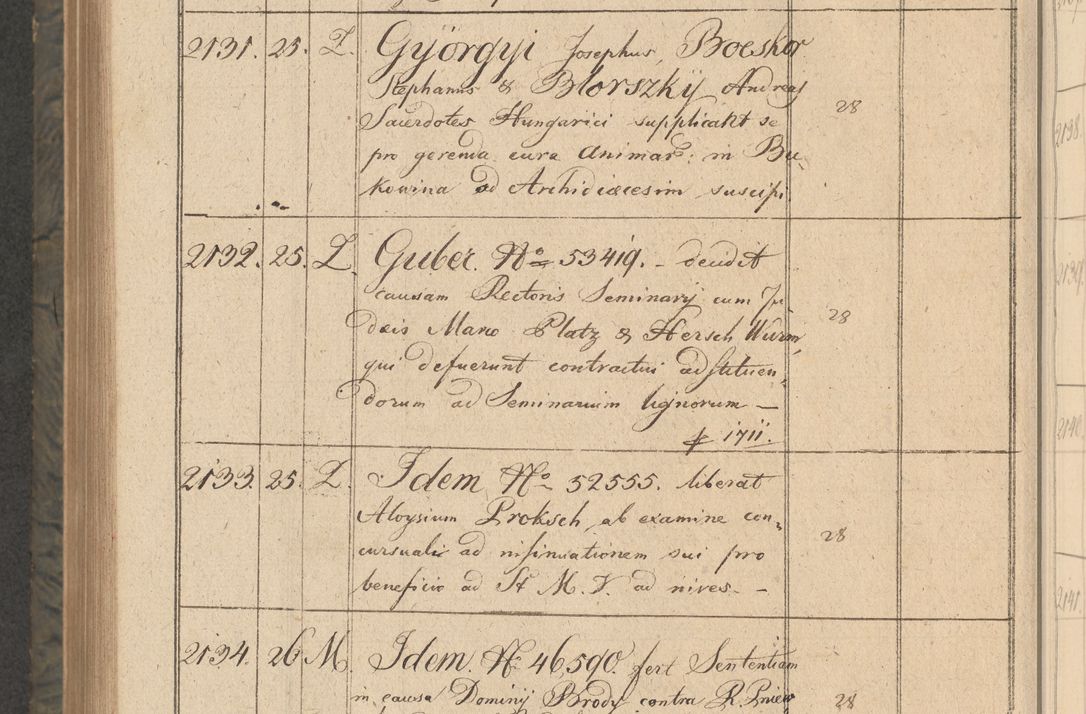 2131. 25. L. Györgyi Josephus, Boeskor
Stephanus & Blorszkÿ Andreas
Sacerdotes Hungarici supplicant se
pro gerenda cura animar: in Bu-
kowina ad Archidiœcesim suscipi 28
2132. 25. L. Guber. No 53419. - decidit
causam Rectoris Seminarÿ cum Ju
dæis Marco Platz & Hersch Wurm,
qui defuerunt contractui adstituen,
dorum ad Seminarium lignorum — 28
1711.
2133. 25. L. Idem No 52555. liberat
Aloysium Proksch ab examine con,
cursuali ad insinuationem sui pro
beneficio ad St M. V. ad nives. - 28
2134. 26 M. Idem No 46,590. fert Sententiam
in causa Dominÿ Brody contra R. Pniew 28
2138
2139.
2140
2141